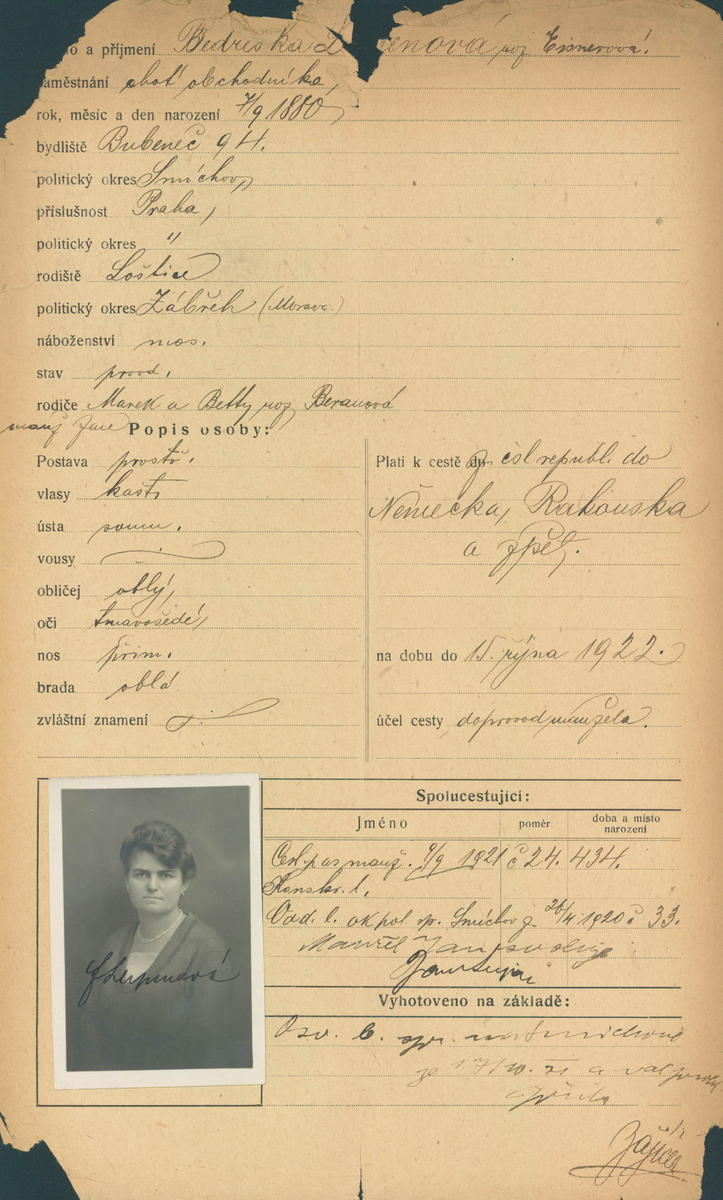 o a příjmení Bedřiška enová roz. Eisnerová.
aměstnání choť obchodníka,
rok, měsíc a den narození 7/9 1880,
bydliště Bubeneč 94.
politický okres Smíchov,
příslušnost Praha,
politický okres "
rodiště Loštice
politický okres Zábřeh (Morava)
náboženství mos.
stav provd.
rodiče Marek a Betty roz. Beranová
manž. Jan
Popis osoby:
Postava prostř.
vlasy kašt.
ústa soum.
vousy
obličej oblý,
oči tmavošedé,
nos přim.
brada oblá
zvláštní znamení
Platí k cestě z čsl republ. do
Německa, Rakouska
a zpět.
na dobu do 15. října 1922.
účel cesty doprovod manžela.
Spolucestující:
Jméno poměr doba a místo narození
Cest. pas manž. 9/9 1921 č 24.434.
Konskr. l.
Osv. l. ok pol. sp. Smíchov z 26/4 1920 č 33.
Manžel Jan svoluje
Vyhotoveno na základě:
Osv. l. spr. na Smíchově